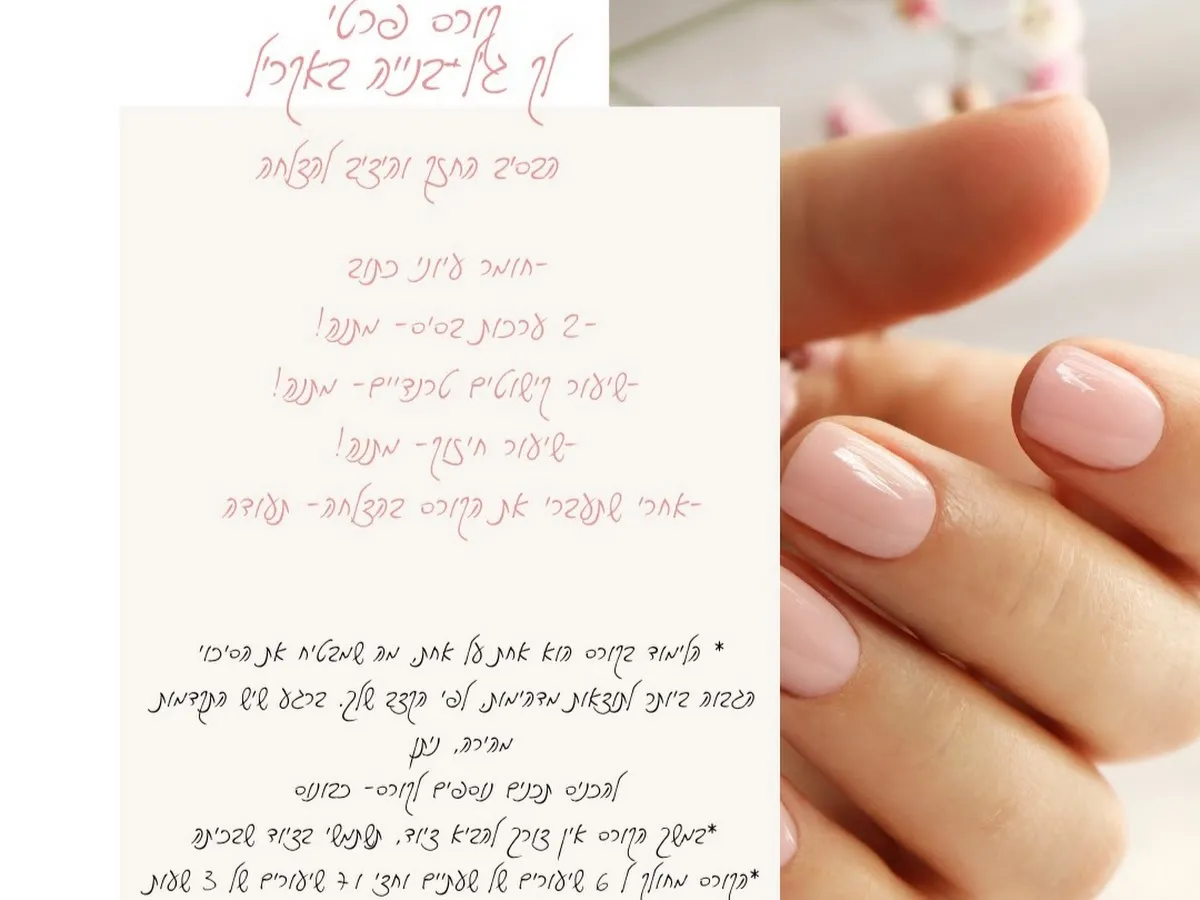 קורס פרטי
לק ג'ל+בנייה באקריל
הבסיב החזק והיציב להצלחה
-חומר עיוני כתוב
-2 ערכות בסיס- מתנה!
-שיעור קישוטים טרנדיים- מתנה!
-שיעור חיזוק- מתנה!
-אחרי שתעברי את הקורס בהצלחה- תעודה
* הלימוד בקורס הוא אחת על אחת, מה שמבטיח את הסיכוי
הגבוה ביותר לתוצאות מדהימות, לפי הקצב שלך. ברגע שיש התקדמות
מהירה, ניתן
להכניס תכנים נוספים לקורס- כבונוס
*במשך הקורס אין צורך להביא ציוד, תשתמשי בציוד שבכיתה
*הקורס מחולק ל 6 שיעורים של שעתיים וחצי ו 7 שיעורים של 3 שעות